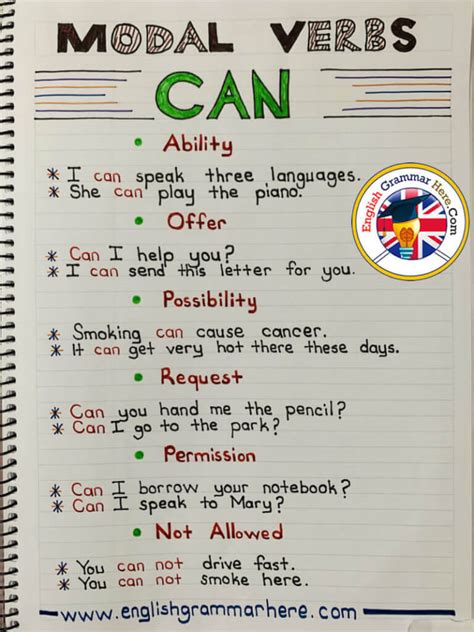 MODAL VERBS
CAN
• Ability
* I can speak three languages.
* She can play the piano.
English Grammar Here.Com
• Offer
* Can I help you?
* I can send this letter for you.
• Possibility
* Smoking can cause cancer.
* It can get very hot there these days.
• Request
* Can you hand me the pencil?
* Can I go to the park?
• Permission
* Can I borrow your notebook?
* Can I speak to Mary?
• Not Allowed
* You can not drive fast.
* You can not smoke here.
www.englishgrammarhere.com